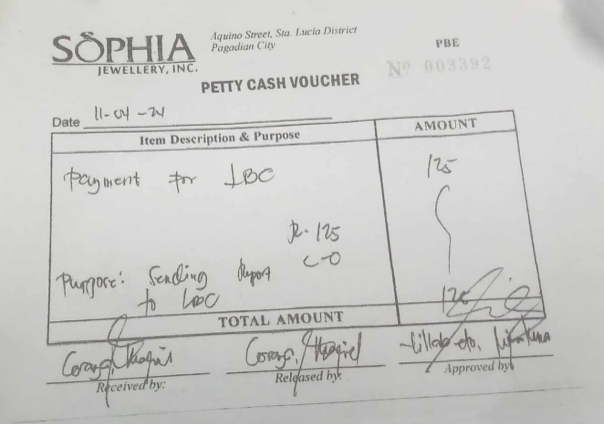 SOPHIA
JEWELLERY, INC.
Aquino Street, Sta. Lucia District
Pagadian City
PBE
Nº 003392
PETTY CASH VOUCHER
Date 11-04-24
Item Description & Purpose AMOUNT
Payment for LBC 125
R-125
C-0
Purpose: Sending Report
to LBC 125
TOTAL AMOUNT
Received by:
Released by:
Approved by: